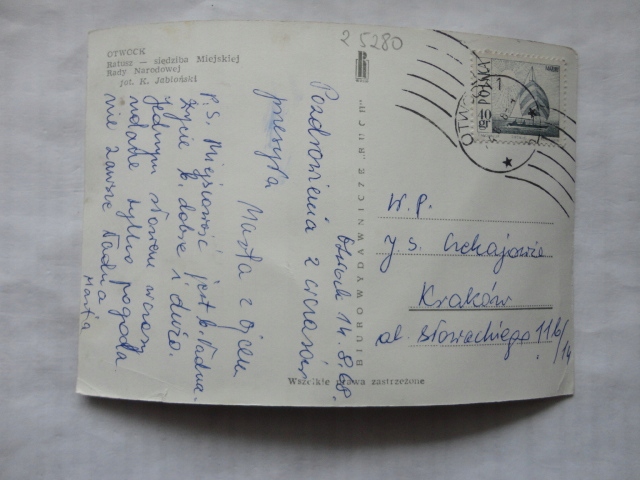 OTWOCK
Ratusz — siedziba Miejskiej
Rady Narodowej
fot. K. Jabłoński
25280
Otwock 14.8.68.
Pozdrowienia z wczasów
przesyła Marta z Ojcem
P.S. Miejscowość jest b. ładna.
Życie b. dobre i dużo.
Jednym słowem wczasy
udałe tylko pogoda
nie zawsze ładna
Marta
BIURO WYDAWNICZE „RUCH"
W.P.
J. S.
Kraków
al. Słowackiego 11b/14
Wszelkie prawa zastrzeżone